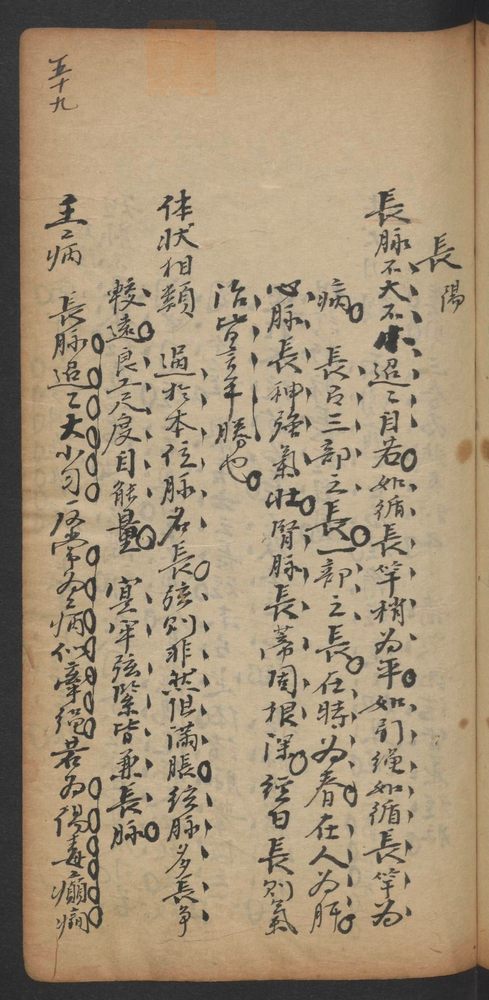 五十九
長 陽
長脉不大不小迢〻自若如循長竿梢為平如引繩如循長竿為
病 長有三部之長一部之長在時為春在人為肝
心脉長神強氣壯腎脉長蒂固根深經曰長則氣
治皆言平脉也
体狀相類 過於本位脉名長弦則非然但滿張弦脉多長爭
較遠良工尺度自能量 實牢弦緊皆兼長脉
主〻病 長脉迢〻大小勻反常為病似牽繩若為陽毒癲癇